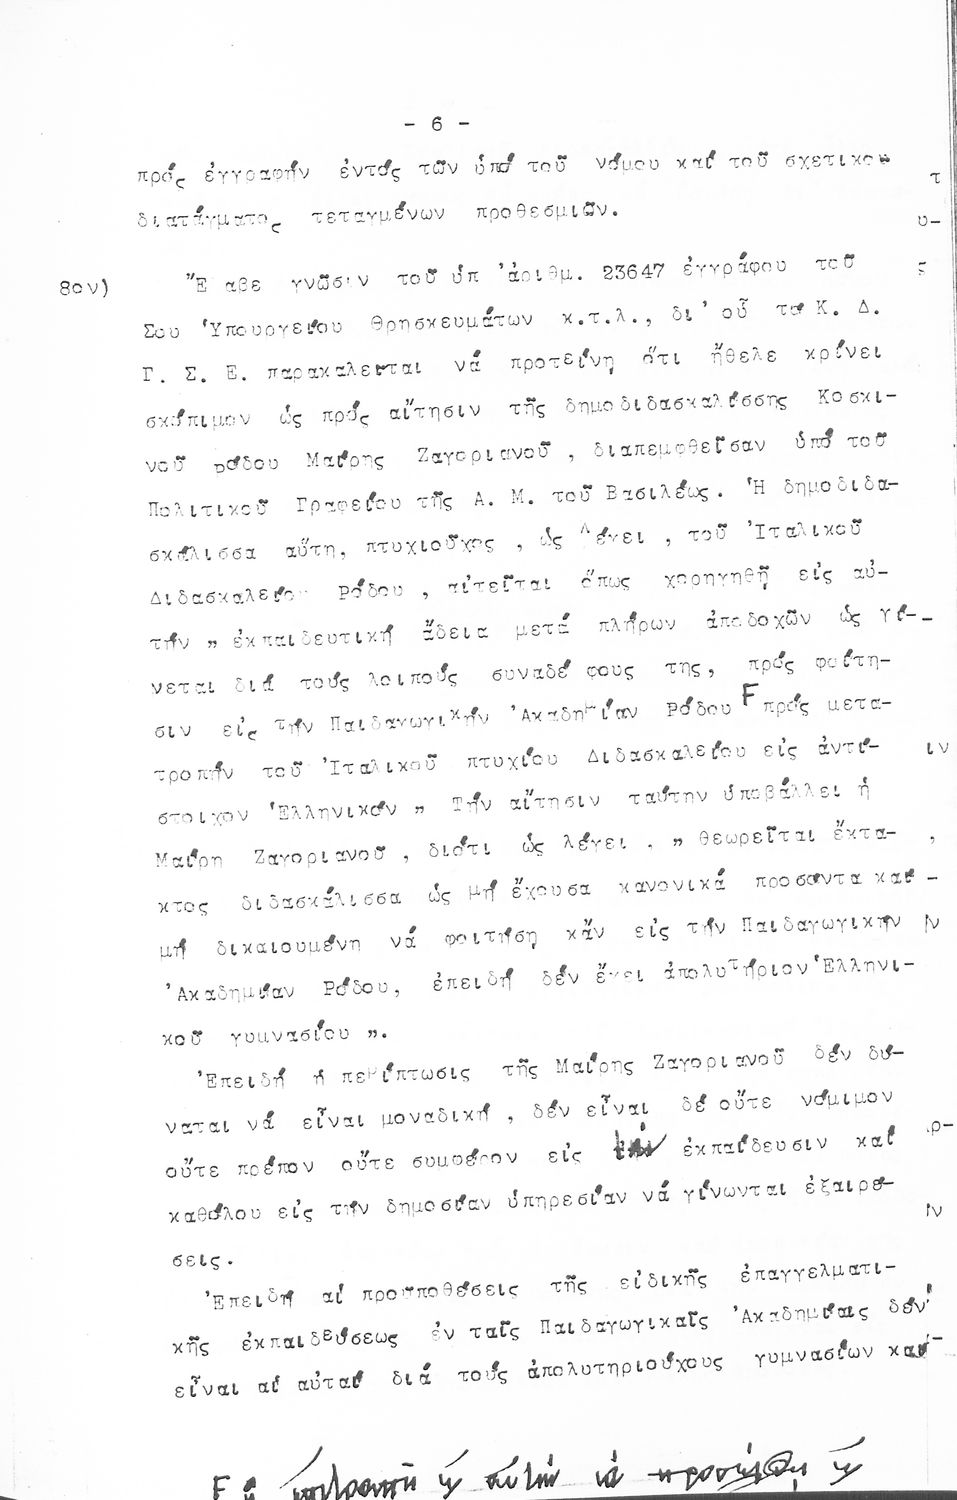 - 6 -
πρός ἐγγραφήν ἐντός τῶν ὑπό τοῦ νόμου καί τοῦ σχετικοῦ
διατάγματος τεταγμένων προθεσμιῶν.
8ον) Ἔ αβε γνῶσιν τοῦ ὑπ 'ἀριθμ. 23647 ἐγγράφου τοῦ
Σου Ὑπουργείου Θρησκευμάτων κ.τ.λ., δι' οὗ τό Κ. Δ.
Γ. Σ. Ε. παρακαλεῖται νά προτείνῃ ὅτι ἤθελε κρίνει
σκόπιμον ὡς πρός αἴτησιν τῆς δημοδιδασκαλίσσης Κοσκι-
νοῦ Ρόδου Μαίρης Ζαγοριανοῦ, διαπεμφθεῖσαν ὑπό τοῦ
Πολιτικοῦ Γραφείου τῆς Α. Μ. τοῦ Βασιλέως. Ἡ δημοδιδα-
σκάλισσα αὕτη, πτυχιοῦχος, ὡς λέγει, τοῦ Ἰταλικοῦ
Διδασκαλείου Ρόδου, αἰτεῖται ὅπως χορηγηθῇ εἰς αὐ-
τήν " ἐκπαιδευτική ἄδεια μετά πλήρων ἀποδοχῶν ὡς γί-
νεται διά τούς λοιπούς συναδέ φους της, πρός φοίτη-
σιν εἰς τήν Παιδαγωγικήν Ἀκαδημίαν Ρόδου F πρός μετα-
τροπήν τοῦ Ἰταλικοῦ πτυχίου Διδασκαλείου εἰς ἀντί-
στοιχον Ἑλληνικόν " Τήν αἴτησιν ταύτην ὑποβάλλει ἡ
Μαίρη Ζαγοριανοῦ, διότι ὡς λέγει, " θεωρεῖται ἔκτα-
κτος διδασκάλισσα ὡς μή ἔχουσα κανονικά προσόντα καί
μή δικαιουμένη νά φοιτήσῃ κἄν εἰς τήν Παιδαγωγικήν
Ἀκαδημίαν Ρόδου, ἐπειδή δέν ἔχει ἀπολυτήριον Ἑλληνι-
κοῦ γυμνασίου ".
Ἐπειδή ἡ περίπτωσις τῆς Μαίρης Ζαγοριανοῦ δέν δύ-
ναται νά εἶναι μοναδική, δέν εἶναι δέ οὔτε νόμιμον
οὔτε πρέπον οὔτε συμφέρον εἰς τήν ἐκπαίδευσιν καί
καθόλου εἰς τήν δημοσίαν ὑπηρεσίαν νά γίνωνται ἐξαιρέ-
σεις.
Ἐπειδή αἱ προϋποθέσεις τῆς εἰδικῆς ἐπαγγελματι-
κῆς ἐκπαιδεύσεως ἐν ταῖς Παιδαγωγικαῖς Ἀκαδημίαις δέν
εἶναι αἱ αὐταί διά τούς ἀπολυτηριούχους γυμνασίων καί